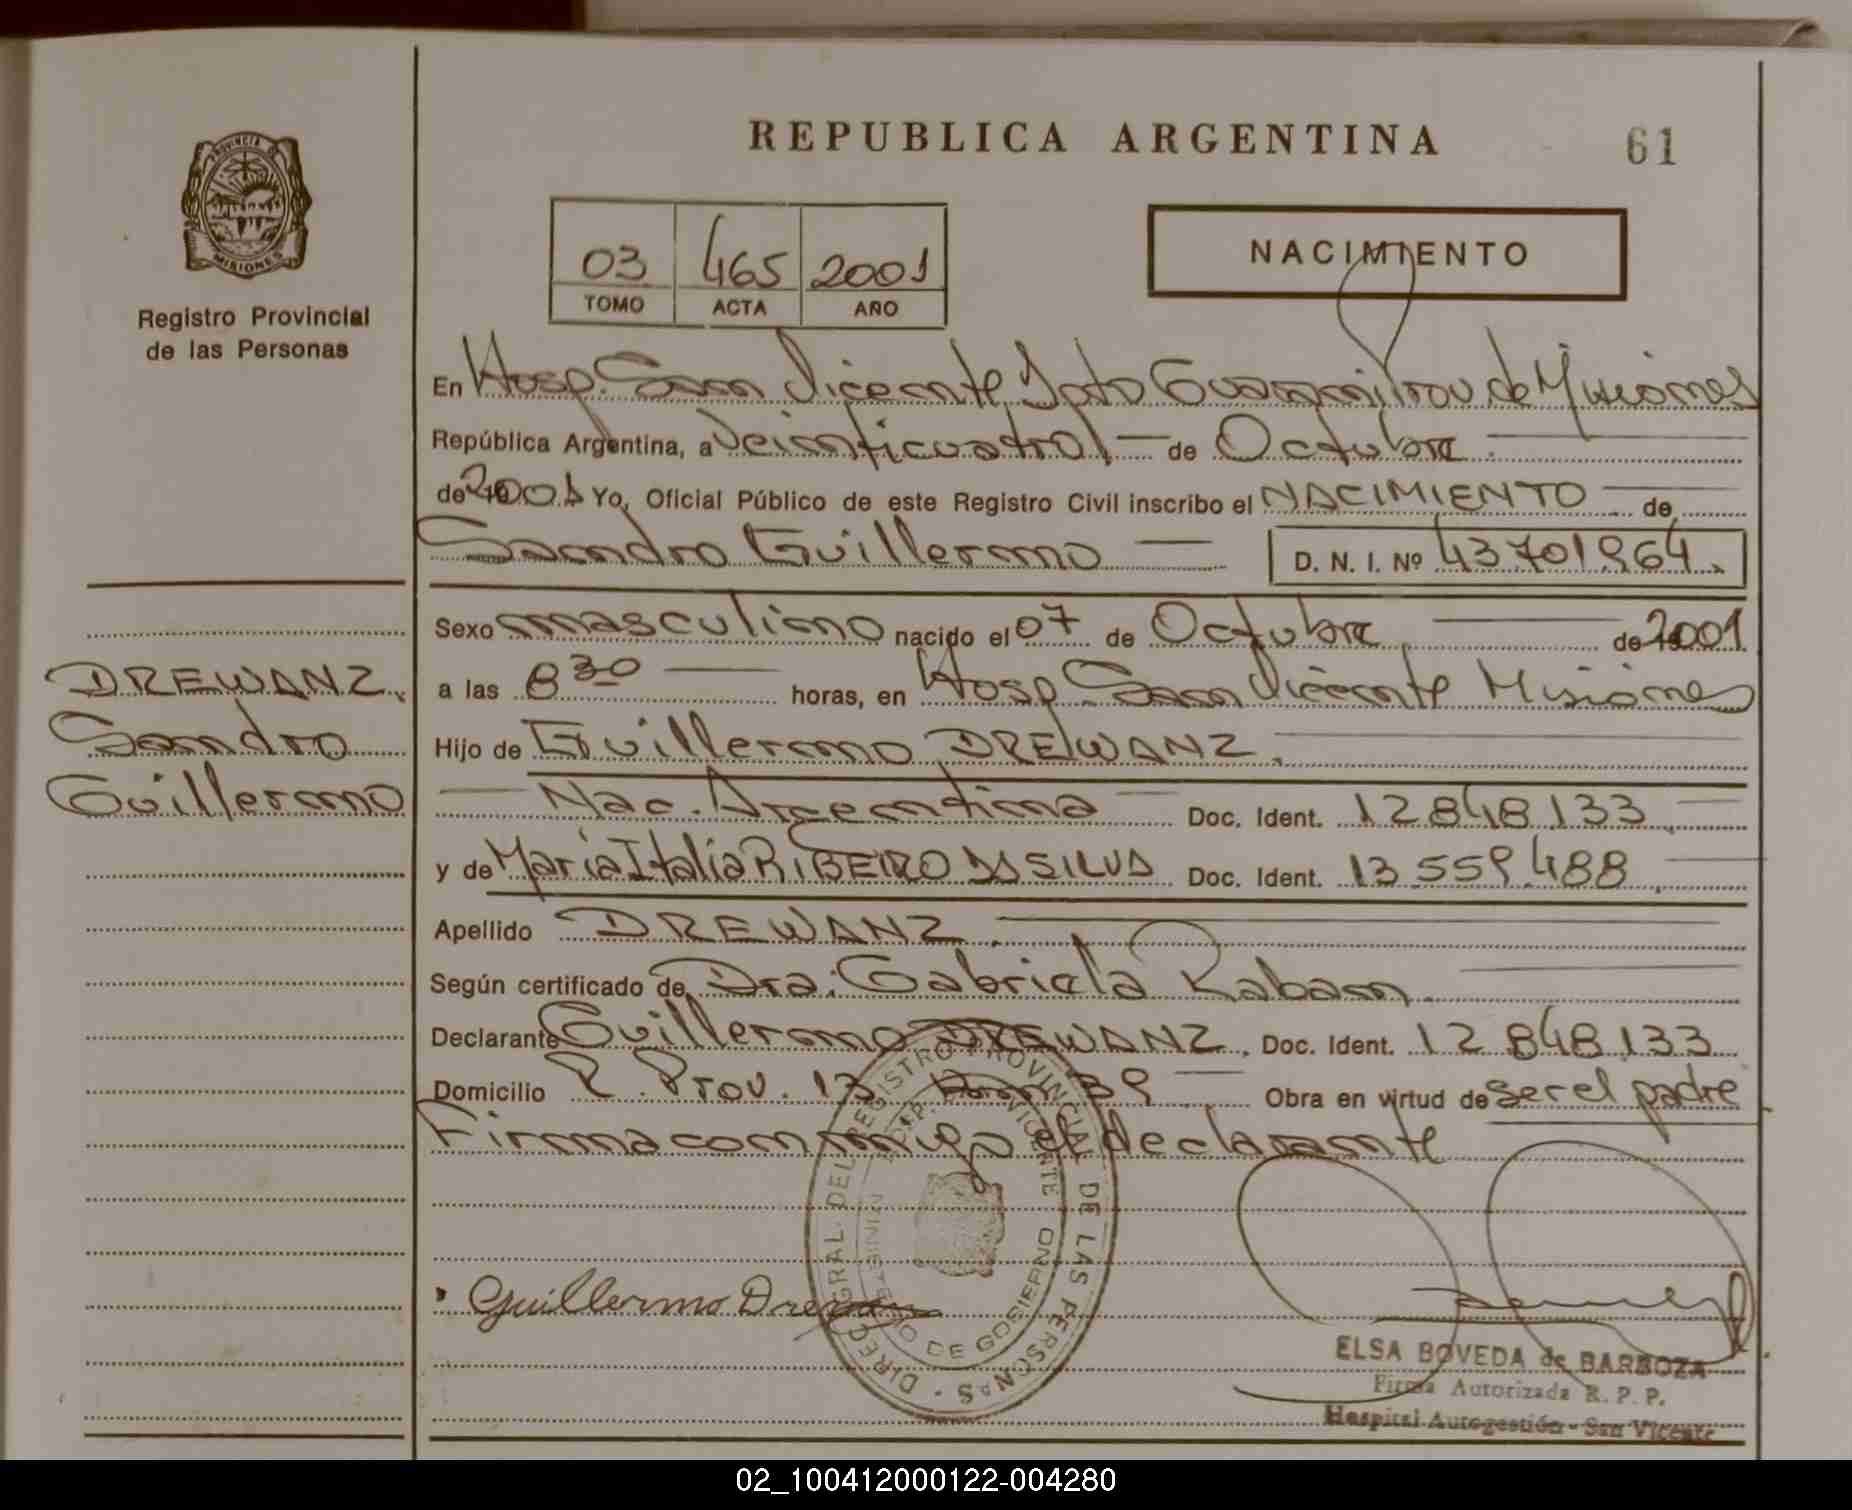 REPUBLICA ARGENTINA
61
PROVINCIA DE
MISIONES
Registro Provincial
de las Personas
03 465 2001
TOMO ACTA AÑO
NACIMIENTO
En Hosp. San Vicente Dpto Guaraní Prov. de Misiones
República Argentina, a veinticuatro de Octubre
de 2001 Yo, Oficial Público de este Registro Civil inscribo el NACIMIENTO de
Sandro Guillermo D. N. I. Nº 43.701.964.
Sexo masculino nacido el 07 de Octubre de 2001
DREWANZ
Sandro
Guillermo
a las 8 30 horas, en Hosp. San Vicente Misiones
Hijo de Guillermo DREWANZ.
Nac. Argentina Doc. Ident. 12.848.133
y de María Italia RIBEIRO DA SILVA Doc. Ident. 13.559.488
Apellido DREWANZ.
Según certificado de Dra. Gabriela Raban.
Declarante Guillermo DREWANZ. Doc. Ident. 12.848.133
Domicilio R. Prov. 13 Km 39 Obra en virtud de ser el padre
Firma conmigo el declarante
DIREC. GRAL. DEL REGISTRO PROVINCIAL DE LAS PERSONAS
HOSP. SAN VICENTE
MINISTERIO DE GOBIERNO
Guillermo Drewanz
ELSA BOVEDA de BARBOZA
Firma Autorizada R. P. P.
Hospital Autogestión - San Vicente
02_100412000122-004280